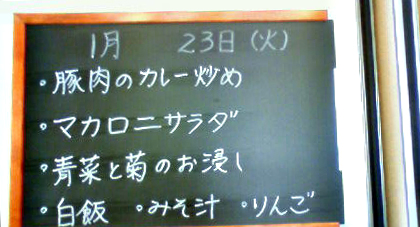 1月 23日(火)
・豚肉のカレー炒め
・マカロニサラダ
・青菜と菊のお浸し
・白飯 ・みそ汁 ・りんご